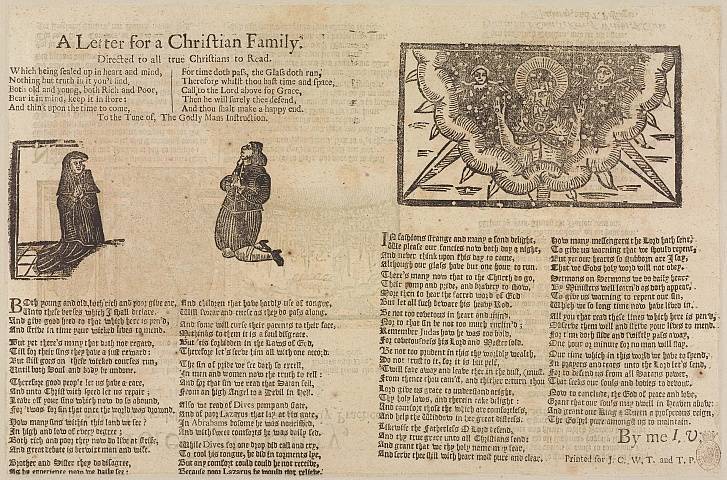 A Letter for a Christian Family.
Directed to all true Christians to Read.
Which being sealed up in heart and mind,
Nothing but truth in it you'l find,
Both old and young, both Rich and Poor,
Bear it in mind, keep it in store:
And think upon the time to come,
For time doth pass, the Glass doth run,
Therefore whilst thou hast time and space,
Call to the Lord above for Grace,
Then he will surely thee defend,
And thou shalt make a happy end.
To the Tune of, The Godly Mans Instruction.
Both young and old, both rich and poor give ear,
Unto these verses which I shall declare.
And give good heed to that which here is pen'd,
And strive in time your wicked lives to mend.
But yet there's many that doth not regard,
Till for their sins they have a just reward:
But still goes on these wicked courses run,
Until both Soul and body be undone.
Therefore good people let us have a care,
And unto Christ with speed let us repair;
Leave off your sins which now do so abound,
For 'twas for sin that once the world was drown'd.
How many sins within this land we see?
In high and low of every degree;
Both rich and poor they now do live at strife,
And great debate is betwixt man and wife.
Brother and Sister they do disagree,
As by experience now we daily see:
And children that have hardly use of tongue,
Will swear and curse as they do pass along.
And some will curse their parents to their face,
Methinks to them it is a foul disgrace.
But 'tis forbidden in the Laws of God,
Therefore let's serve him all with one accord.
The sin of pride we see doth so excell,
In men and women now the truth to tell:
And for that sin we read that Satan fell,
From an high Angel to a Devil in Hell.
Also we read of Dives pomp and state,
And of poor Lazarus that lay at his gate,
In Abrahams bosome he was nourished,
And with sweet comforts he was daily fed.
While Dives for one drop did call and cry,
To cool his tongue, he did in torments lye,
But any comfort could he not receive,
Because poor Lazarus he would not relieve.
IN fashions strange and many a fond delight,
We please our fancies now both day & night,
And never think upon this day to come,
Although our glass have but one hour to run.
There's many now that to the Church do go,
Their pomp and pride, and bravery to show,
Nor then to hear the sacred word of God
But let all such beware his heavy Rod.
Be not too covetous in heart and mind,
Nor to that sin be not too much enclin'd;
Remember Judas how he was too bold,
For covetousness his Lord and Master sold.
Do not trust to it, for it is but pelf,
'Twill fade away and leave thee in the dust,
From thence thou cam'st, and thither return thou
(must.
Lord give us grace to understand aright,
Thy holy laws, and therein take delight:
And comfort those which are comfortless,
And help the Widdow in her great distress.
Likewise the Fatherless O Lord defend,
And thy true grace unto all Christians send:
And grant that we thy holy name may fear,
And serve thee still with heart most pure and clear.
How many messengers the Lord hath sent,
To give us warning that we should repent,
But yet our hearts so stubborn are I say,
That we Gods holy word will not obey.
Sermons on Sermons we do daily hear,
By Ministers well learn'd as doth appear,
To give us warning to repent our sin,
Which we so long time now have lived in.
All you that read these lines which here is pen'd,
Observe them well and strive your lives to mend.
For time doth fade and swiftly pass away,
One hour or minute for no man will stay.
Our time which in this world we have to spend,
In prayers and tears unto the Lord let's send,
For to defend us from all Satans power,
That seeks our souls and bodies to devour.
Now to conclude, the God of peace and love,
Grant that our Souls may dwell in Heaven above:
And grant our King & Queen a prosperous reign,
The Gospel pure amongst us to maintain.
By me I. V.
Printed for J. C. W. T. and T. P.